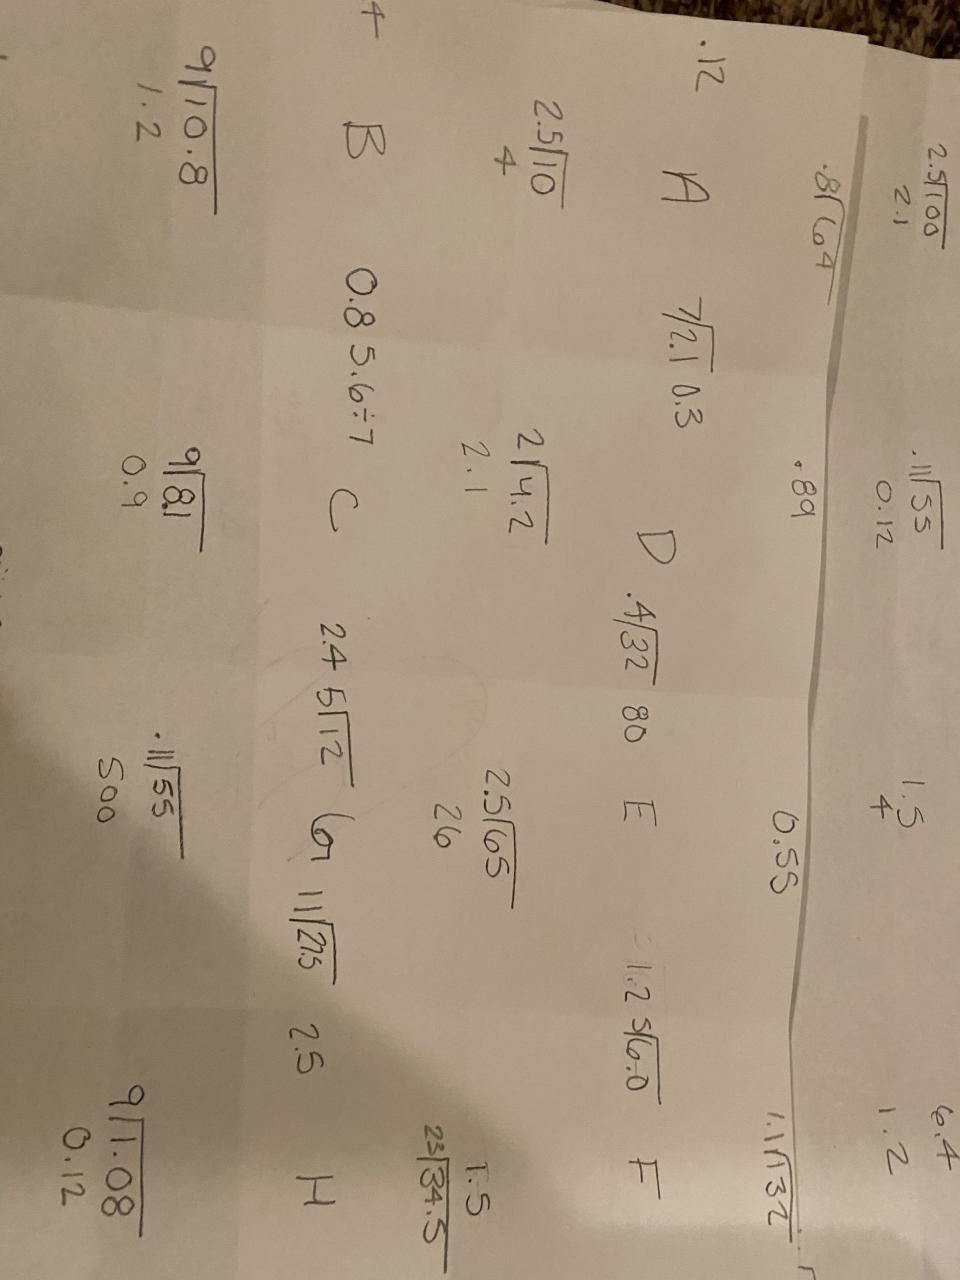 2.5)100 .11)55 1.5 6.4
2.1 0.12 4 1.2
.8)64 .89 0.55 1.1)132
.12 A 7)2.1 0.3 D .4)32 80 E 1.2 5)6.0 F
2.5)10 2)4.2 2.5)65 1.5
4 2.1 26 23)34.5
B 0.8 5.6÷7 C 2.4 5)12 G 11)27.5 2.5 H
9)10.8 9)8.1 .11)55 9)1.08
1.2 0.9 500 0.12